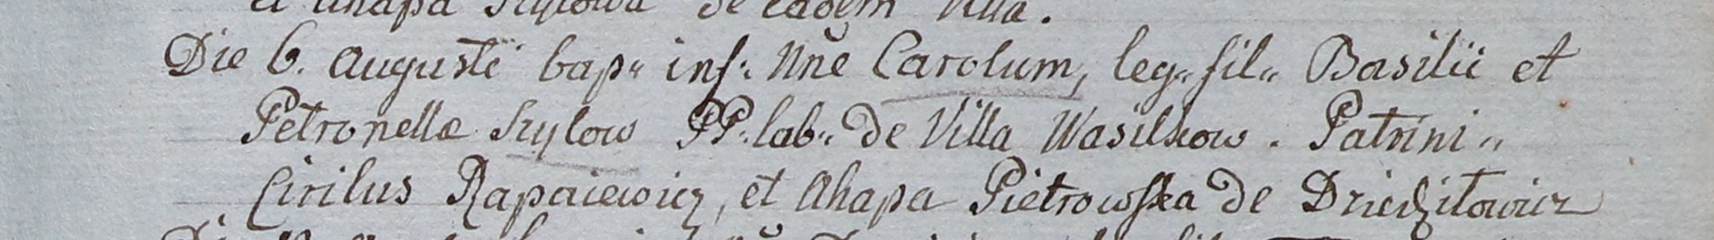 et Ahapa Szyłowa de eadem Villa.
Die 6. Augusti bap: inf: Nne Carolum, leg: fil: Basilii et
Petronellæ Szylow PP. lab: de Villa Wasilkow. Patrini:
Cirilus Rapaiewicz, et Ahapa Pietrowska de Dziedziłowicz